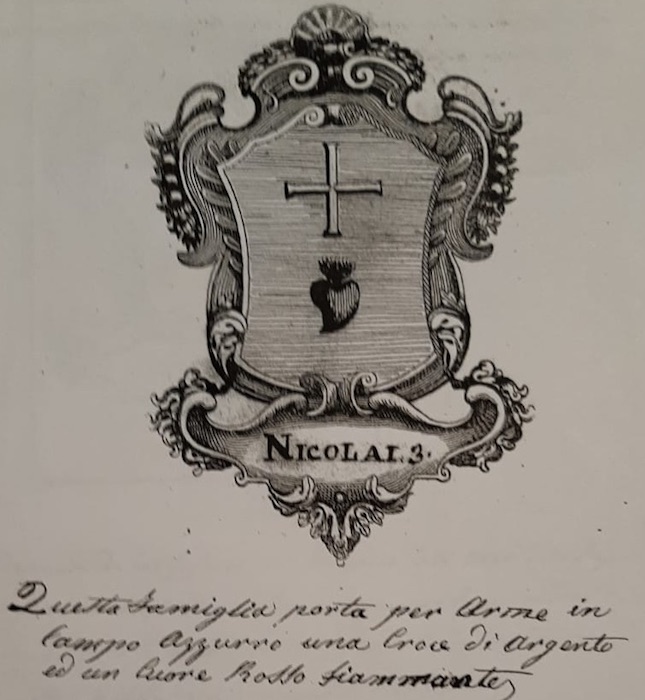 NICOLAI. 3.
Questa famiglia porta per Arme in
Campo Azzurro una Croce di Argento
ed un Cuore Rosso fiammante